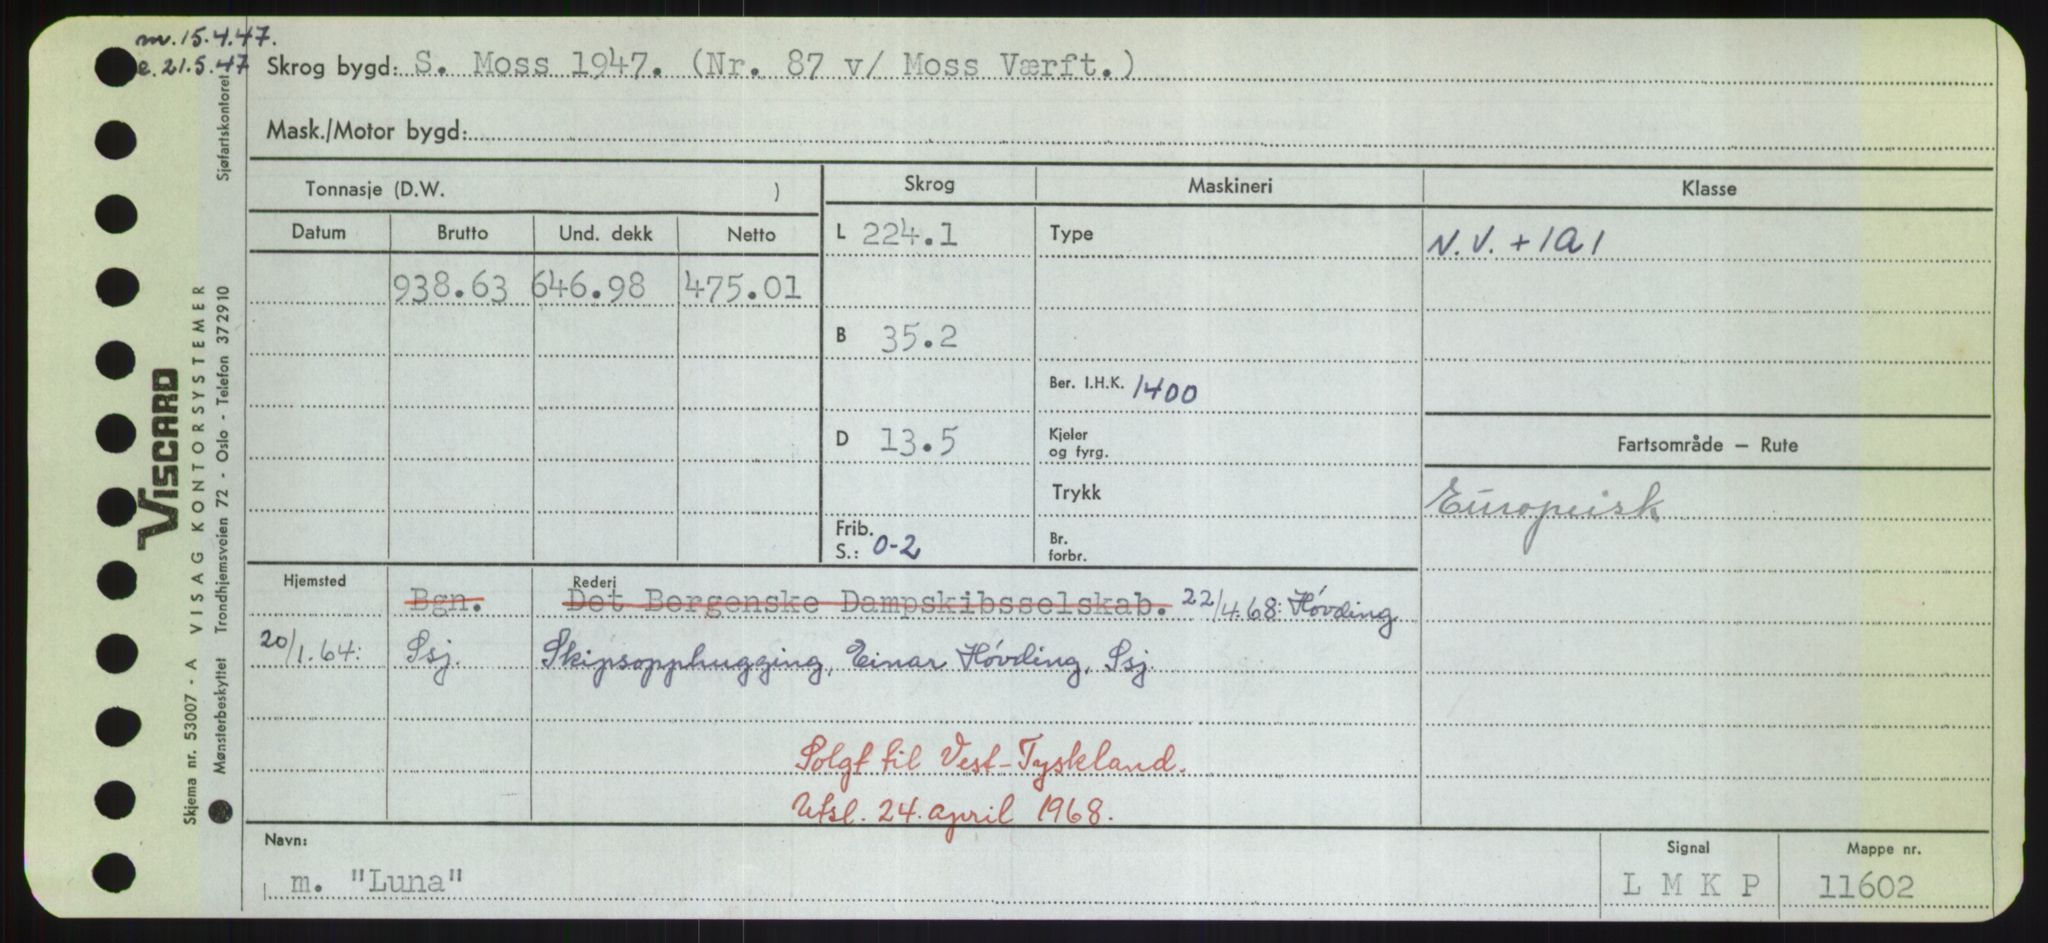 m. 15.4.47.
e. 21.5.47
Skrog bygd: S. Moss 1947. (Nr. 87 v/ Moss Værft.)
Mask./Motor bygd:
Tonnasje (D.W. )
Skrog
Maskineri
Klasse
Datum
Brutto
Und. dekk
Netto
L 224.1
Type
N.V. + 1A1
938.63 646.98 475.01
B 35.2
Ber. I.H.K. 1400
D 13.5
Kjeler
og fyrg.
Fartsområde — Rute
Trykk
Europeisk
Frib.
S.: 0-2
Br.
forbr.
Hjemsted
Rederi
Bgn. Det Bergenske Dampskibsselskab. 22/4.68: Høvding
20/1.64: Ssj. Skipsopphugging, Einar Høvding, Ssj.
Solgt til Vest-Tyskland.
Utsl. 24. april 1968.
Navn:
m. "Luna"
Signal
L M K P
Mappe nr.
11602
Skjema nr. 53007 - A VISAG KONTORSYSTEMER
VISCARD
Mønsterbeskyttet Trondhjemsveien 72 - Oslo - Telefon 372910 Sjøfartskontoret